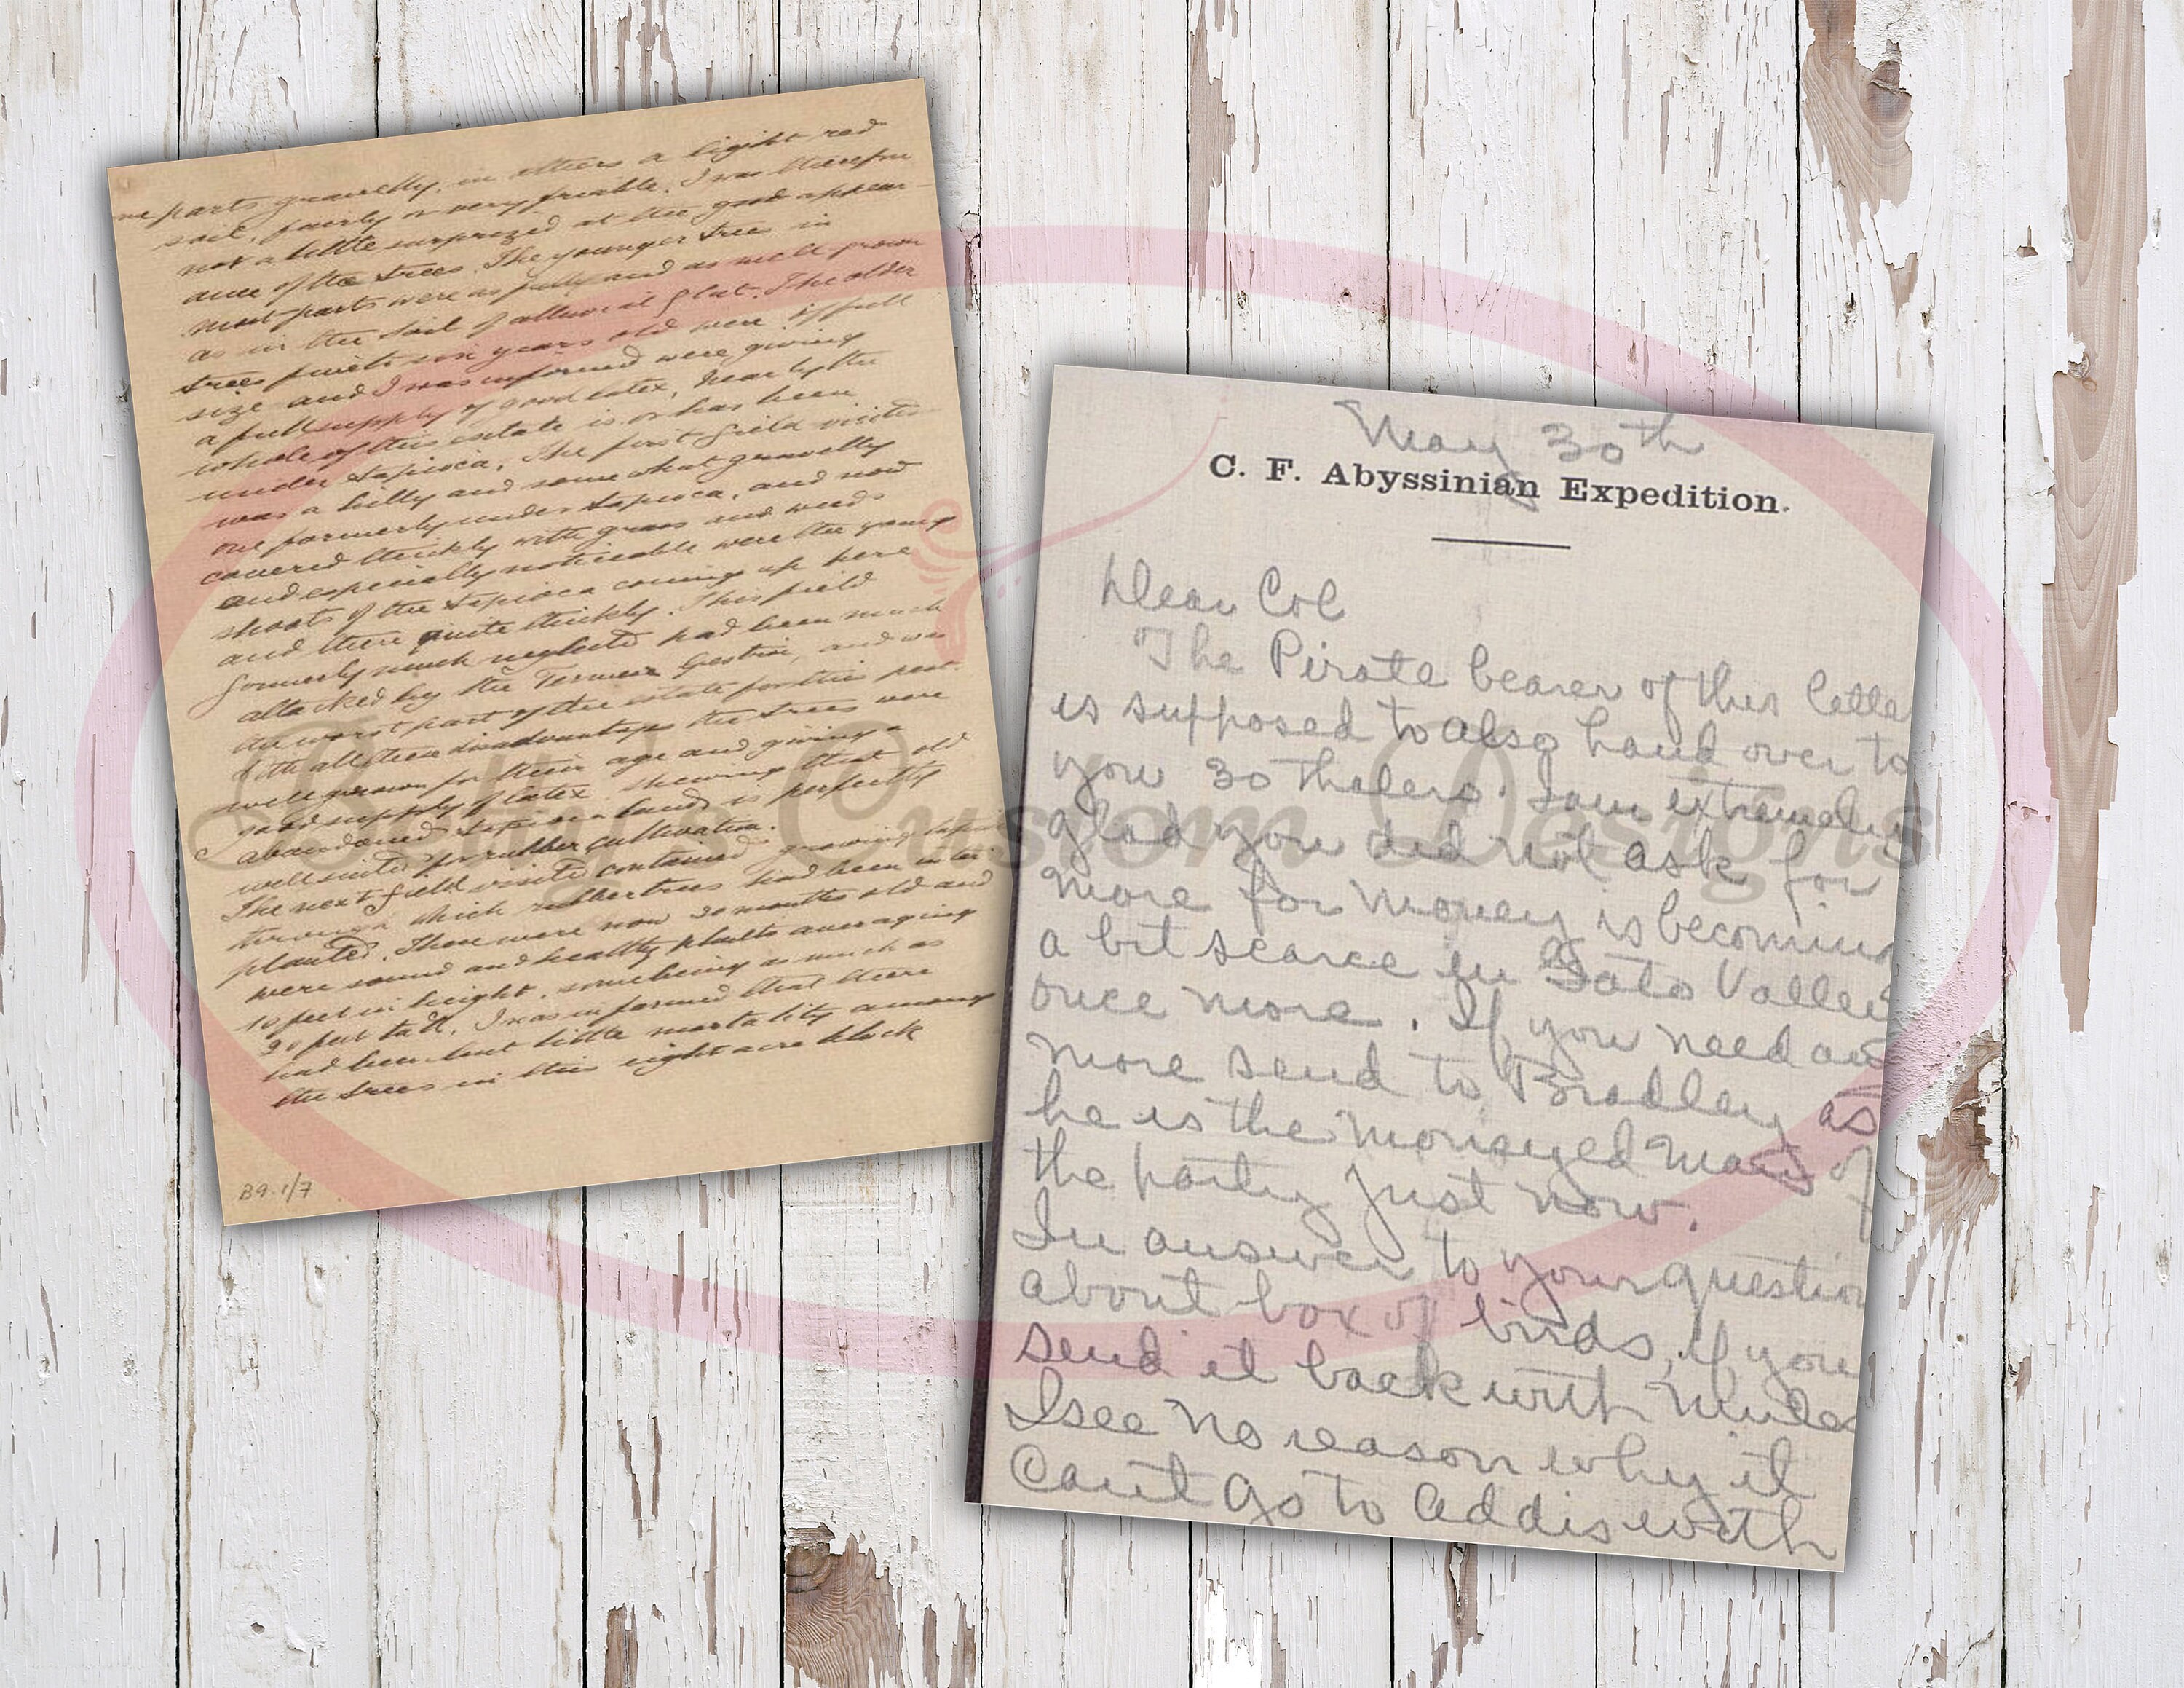 me parts gravelly, in others a light red
soil, fairly or very friable. I was therefore
not a little surprized at the good appear-
ance of the trees. The younger trees in
most parts were as fully and as well grown
as in the soil of alluvial flat. The older
trees, quite six years old were of full
size and I was informed were giving
a full supply of good latex. Nearly the
whole of this estate is or has been
under tapioca. The first field visited
was a hilly and somewhat gravelly
one formerly under tapioca, and now
covered thickly with grass and weeds
and especially noticeable were the young
shoots of the tapioca coming up here
and there quite thickly. This field
formerly much neglected had been much
attacked by the Termes Gestroi, and was
the worst part of the estate for this pest.
With all these disadvantages the trees were
well grown for their age and giving a
good supply of latex, shewing that old
abandoned tapioca land is perfectly
well suited for rubber cultivation.
The next field visited contained growing tapioca
through which rubber trees had been inter-
planted. These were now 20 months old and
were sound and healthy plants averaging
10 feet in height, some being as much as
20 feet tall. I was informed that there
had been but little mortality among
the trees in this eight acre block
B9.1/7
May 30th
C. F. Abyssinian Expedition.
Dear Col
The Pirate bearer of this letter
is supposed to also hand over to
you 30 thalers. I am extremely
glad you did not ask for
more for money is becoming
a bit scarce in Gato Valley
once more. If you need any
more send to Bradley as
he is the moneyed man of
the party just now.
In answer to your question
about box of birds, if you
send it back with mules
I see no reason why it
can't go to Addis with
Kelly's Custom Designs